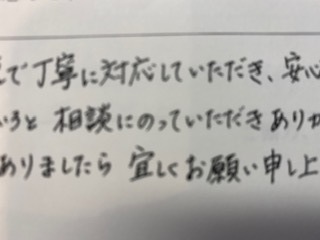 で丁寧に対応していただき、安心
いろと 相談にのっていただきありか
ありましたら 宜しくお願い申し上